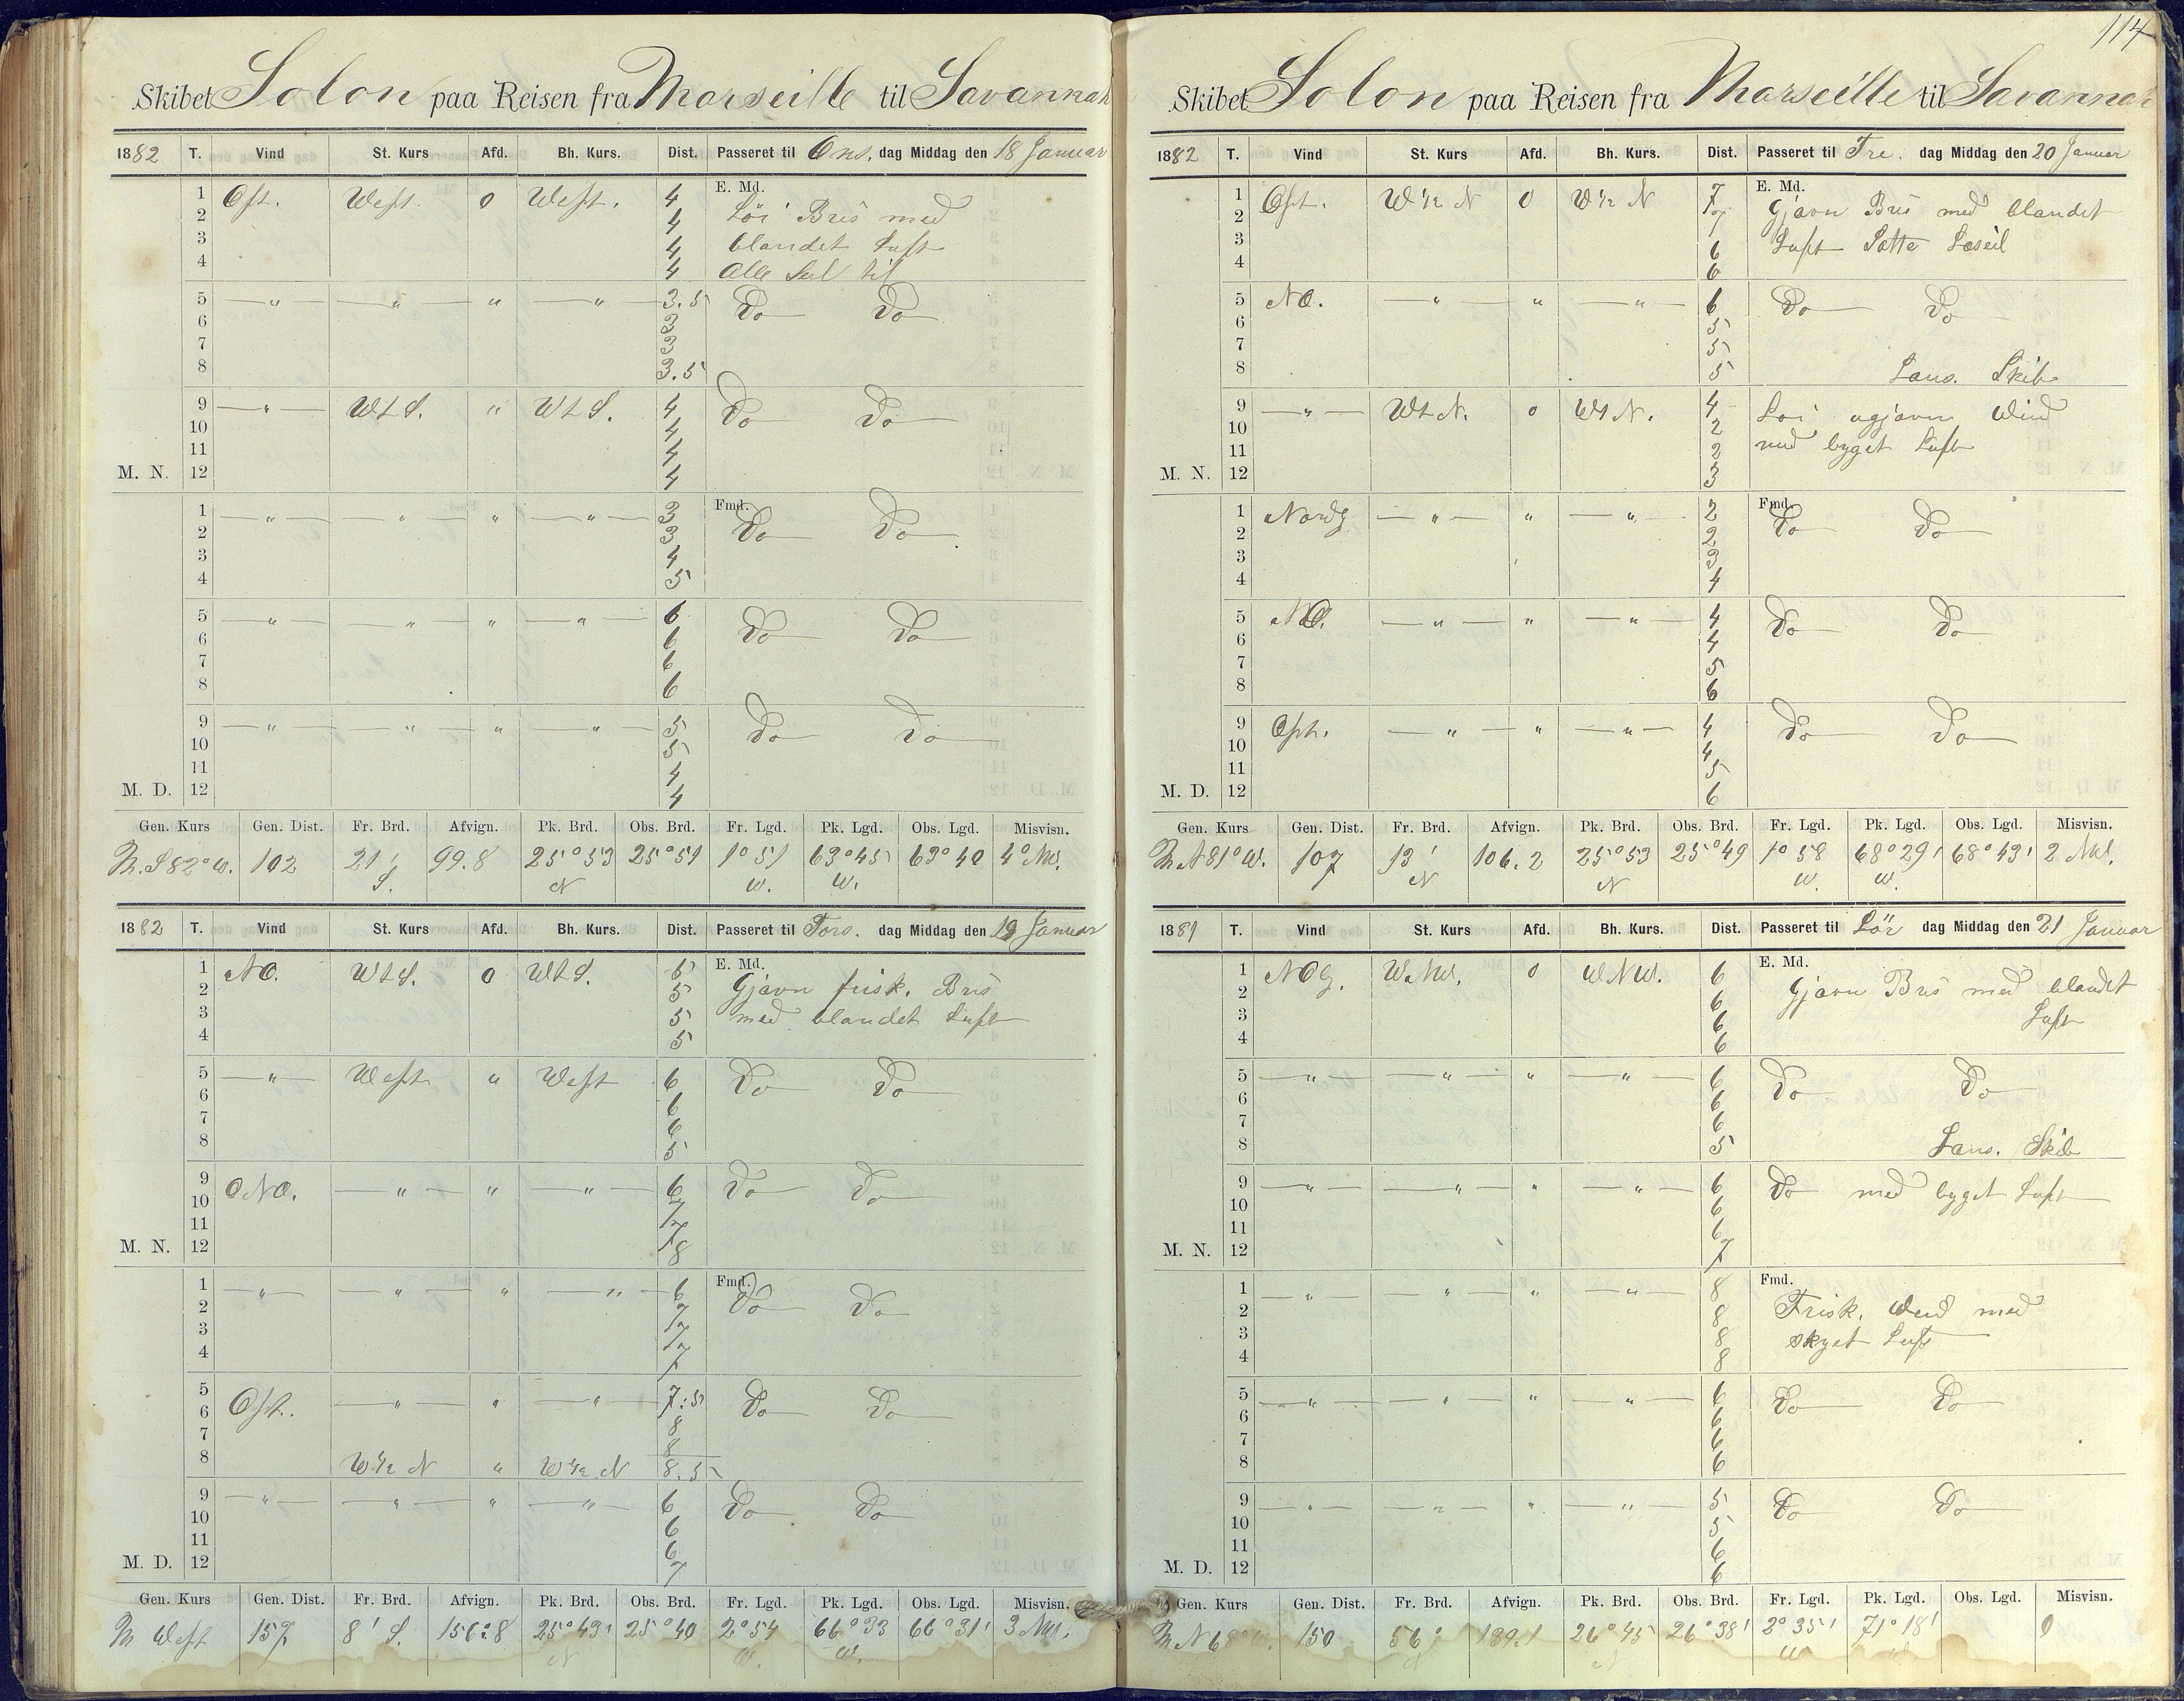 114
Skibet Solon paa Reisen fra Marseille til Savannah
1882 T. Vind St. Kurs Afd. Bh. Kurs. Dist. Passeret til Ons. dag Middag den 18 Januar
E. Md.
1 Ost. West. 0 West. 4 Lör Bris med
2 4
3 4 blandet Luft
4 4 Alle Seil til
5 — " — — " — " — " — 3.5 Do Do
6 3
7 3
8 3.5
9 — " — WtS. " WtS. 4 Do Do
10 4
11 4
M. N. 12 4
Fmd.
1 — " — — " — " — " — 3 Do Do
2 3
3 4
4 5
5 — " — — " — " — " — 6 Do Do
6 6
7 6
8 6
9 — " — — " — " — " — 5 Do Do
10 5
11 4
M. D. 12 4
Gen. Kurs Gen. Dist. Fr. Brd. Afvign. Pk. Brd. Obs. Brd. Fr. Lgd. Pk. Lgd. Obs. Lgd. Misvisn.
M. S 82° W. 102 21' S. 99.8 25°53 N 25°51 1°51 W. 63°45 W. 63°40 4° NW.
1882 T. Vind St. Kurs Afd. Bh. Kurs. Dist. Passeret til Tors. dag Middag den 19 Januar
E. Md.
1 NO. WtS. 0 WtS. 5 Gjavn frisk. Bris
2 5
3 5 med blandet Luft
4 5
5 — " — West " West 6 Do Do
6 6
7 6
8 5
9 ONO. — " — " — " — 6 Do Do
10 7
11 7
M. N. 12 8
Fmd.
1 — " — — " — " — " — 6 Do Do
2 7
3 7
4 7
5 — " — " — " — 7.5 Do Do
6 Ost. 8
7 8
8 W½ N " W½ N 8.5
9 — " — — " — " — " — 6 Do Do
10 6
11 6
M. D. 12 7
Gen. Kurs Gen. Dist. Fr. Brd. Afvign. Pk. Brd. Obs. Brd. Fr. Lgd. Pk. Lgd. Obs. Lgd. Misvisn.
M West 157 8' S. 156.8 25°43' N 25°40 2°54 W. 66°33 W. 66°31' 3 NW.
Skibet Solon paa Reisen fra Marseille til Savannah
1882 T. Vind St. Kurs Afd. Bh. Kurs. Dist. Passeret til Fre. dag Middag den 20 Januar
E. Md.
1 Ost. W½ N 0 W½ N 7 Gjavn Bris med blandet
2 7
3 6 Luft Satte Læseil
4 6
5 NO. — " — " — " — 6 Do Do
6 5
7 5
8 5 Lans. Skib
9 — " — WtN. 0 WtN. 4 Lör ugjavn Wind
10 2
11 2 med byget Luft
M. N. 12 3
Fmd.
1 Nordg — " — " — " — 2 Do Do
2 2
3 3
4 4
5 NO. — " — " — " — 4 Do Do
6 4
7 5
8 6
9 Ost. — " — " — " — 4 Do Do
10 4
11 5
M. D. 12 6
Gen. Kurs Gen. Dist. Fr. Brd. Afvign. Pk. Brd. Obs. Brd. Fr. Lgd. Pk. Lgd. Obs. Lgd. Misvisn.
M. N 81° W. 107 13' N 106.2 25°53 N 25°49 1°58 W. 68°29' W. 68°43' 2 NW.
1881 T. Vind St. Kurs Afd. Bh. Kurs. Dist. Passeret til Lör dag Middag den 21 Januar
E. Md.
1 NOg. WNW. 0 WNW. 6 Gjavn Bris med blandet
2 6
3 6 Luft
4 6
5 — " — — " — " — " — 6 Do Do
6 6
7 6
8 5 Lans. Skib
9 — " — — " — " — " — 6 Do med byget Luft
10 6
11 6
M. N. 12 7
Fmd.
1 — " — — " — " — " — 8
2 8 Frisk. Wind med
3 8 skyet Luft
4 8
5 — " — — " — " — " — 6 Do Do
6 6
7 6
8 6
9 — " — — " — " — " — 5 Do Do
10 5
11 6
M. D. 12 6
Gen. Kurs Gen. Dist. Fr. Brd. Afvign. Pk. Brd. Obs. Brd. Fr. Lgd. Pk. Lgd. Obs. Lgd. Misvisn.
150 56' N 139.1 26°45 N 26°38' 2°35' W 71°18' W 0